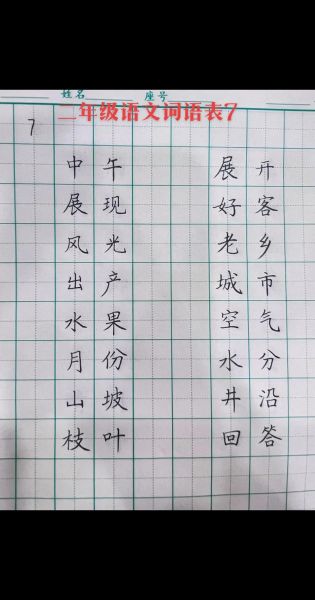 姓名 座号
二年级语文词语表7
7
中午 展开
展现 好客
风光 老乡
出产 城市
水果 空气
月份 水分
山坡 井沿
枝叶 回答